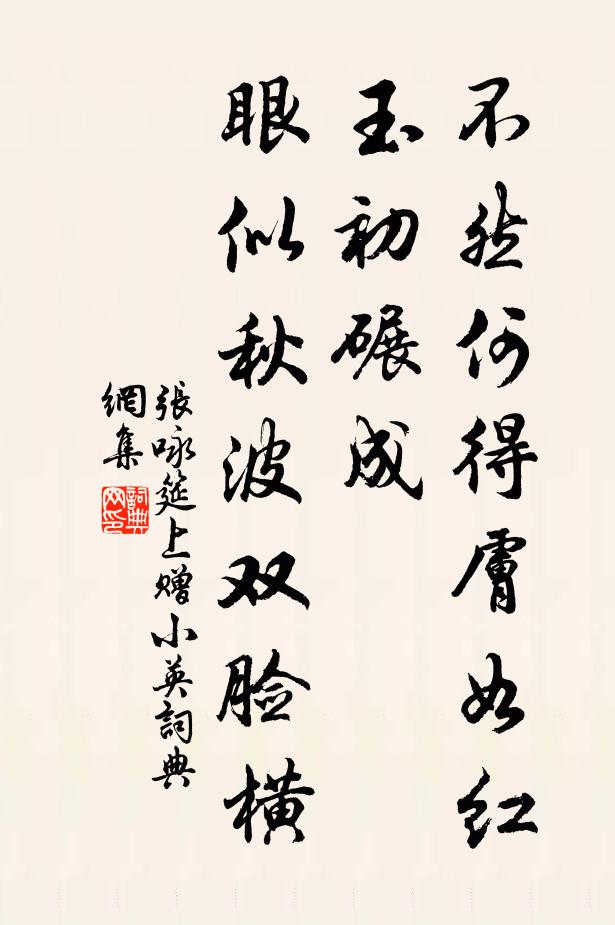 不然何得膚如红
玉初碾成
眼似秋波双脸横
張咏筵上赠小英詞典
網集
詞典
网印